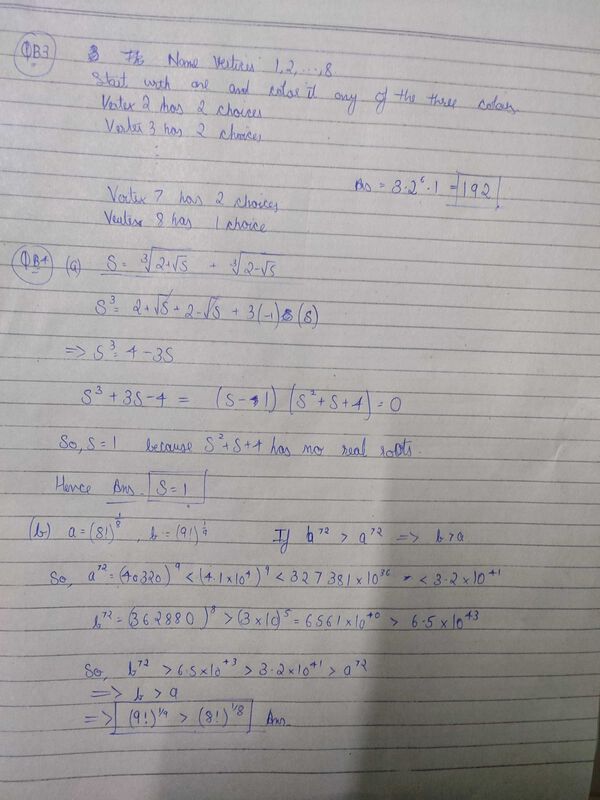 QB3 Name Vertices 1,2,...,8
Start with one and color it any of the three colors.
Vertex 2 has 2 choices
Vertex 3 has 2 choices
⋮
Vertex 7 has 2 choices
Vertex 8 has 1 choice
Ans = 3·2⁶·1 = 192
QB4 (a) S = ∛(2+√5) + ∛(2-√5)
S³ = 2+√5 + 2-√5 + 3(-1)(S)
=> S³ = 4-3S
S³ + 3S - 4 = (S-1) (S²+S+4) = 0
So, S=1 because S²+S+4 has no real roots.
Hence Ans. S=1
(b) a = (8!)^(1/8), b = (9!)^(1/9) If b⁷² > a⁷² => b>a
So, a⁷² = (40320)⁹ < (4.1×10⁴)⁹ < 327381×10³⁶ < 3.2×10⁴¹
b⁷² = (362880)⁸ > (3×10)⁵ = 6561×10⁴⁰ > 6.5×10⁴³
So, b⁷² > 6.5×10⁴³ > 3.2×10⁴¹ > a⁷²
=> b > a
=> (9!)^(1/9) > (8!)^(1/8) Ans.